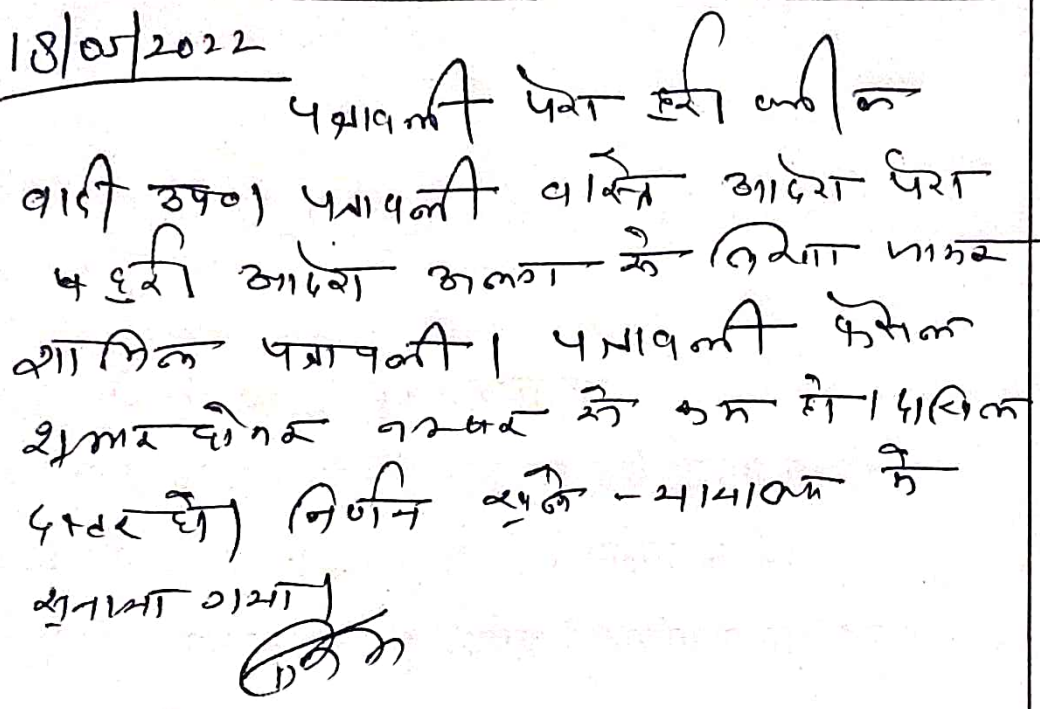 18/05/2022
पत्रावली पेश हुई वकील
वादी उप०। पत्रावली वास्ते आदेश पेश
हुई आदेश अलग से लिखा जाकर
शामिल पत्रावली। पत्रावली फैसल
शुमार होकर नम्बर से कम हो। दाखिल
दफ्तर हो। निर्णय खुले न्यायालय में
सुनाया गया।